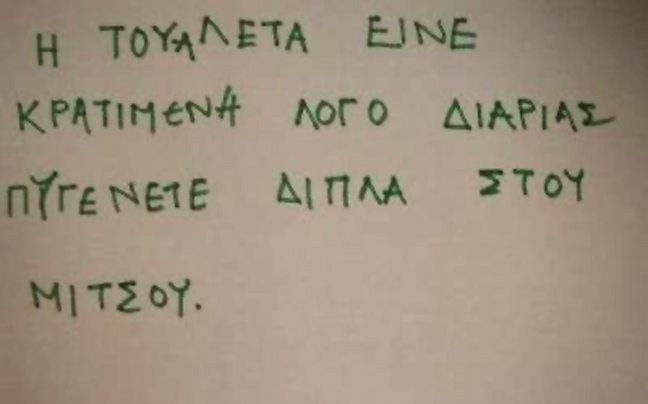 Η ΤΟΥΑΛΕΤΑ ΕΙΝΕ
ΚΡΑΤΙΜΕΝΗ ΛΟΓΟ ΔΙΑΡΙΑΣ
ΠΥΓΕΝΕΤΕ ΔΙΠΛΑ ΣΤΟΥ
ΜΙΤΣΟΥ.